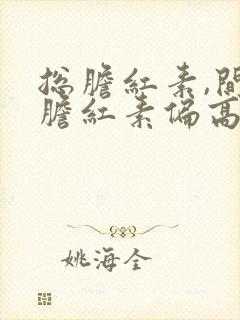 总膽紅素,間
膽紅素偏高
姚海全